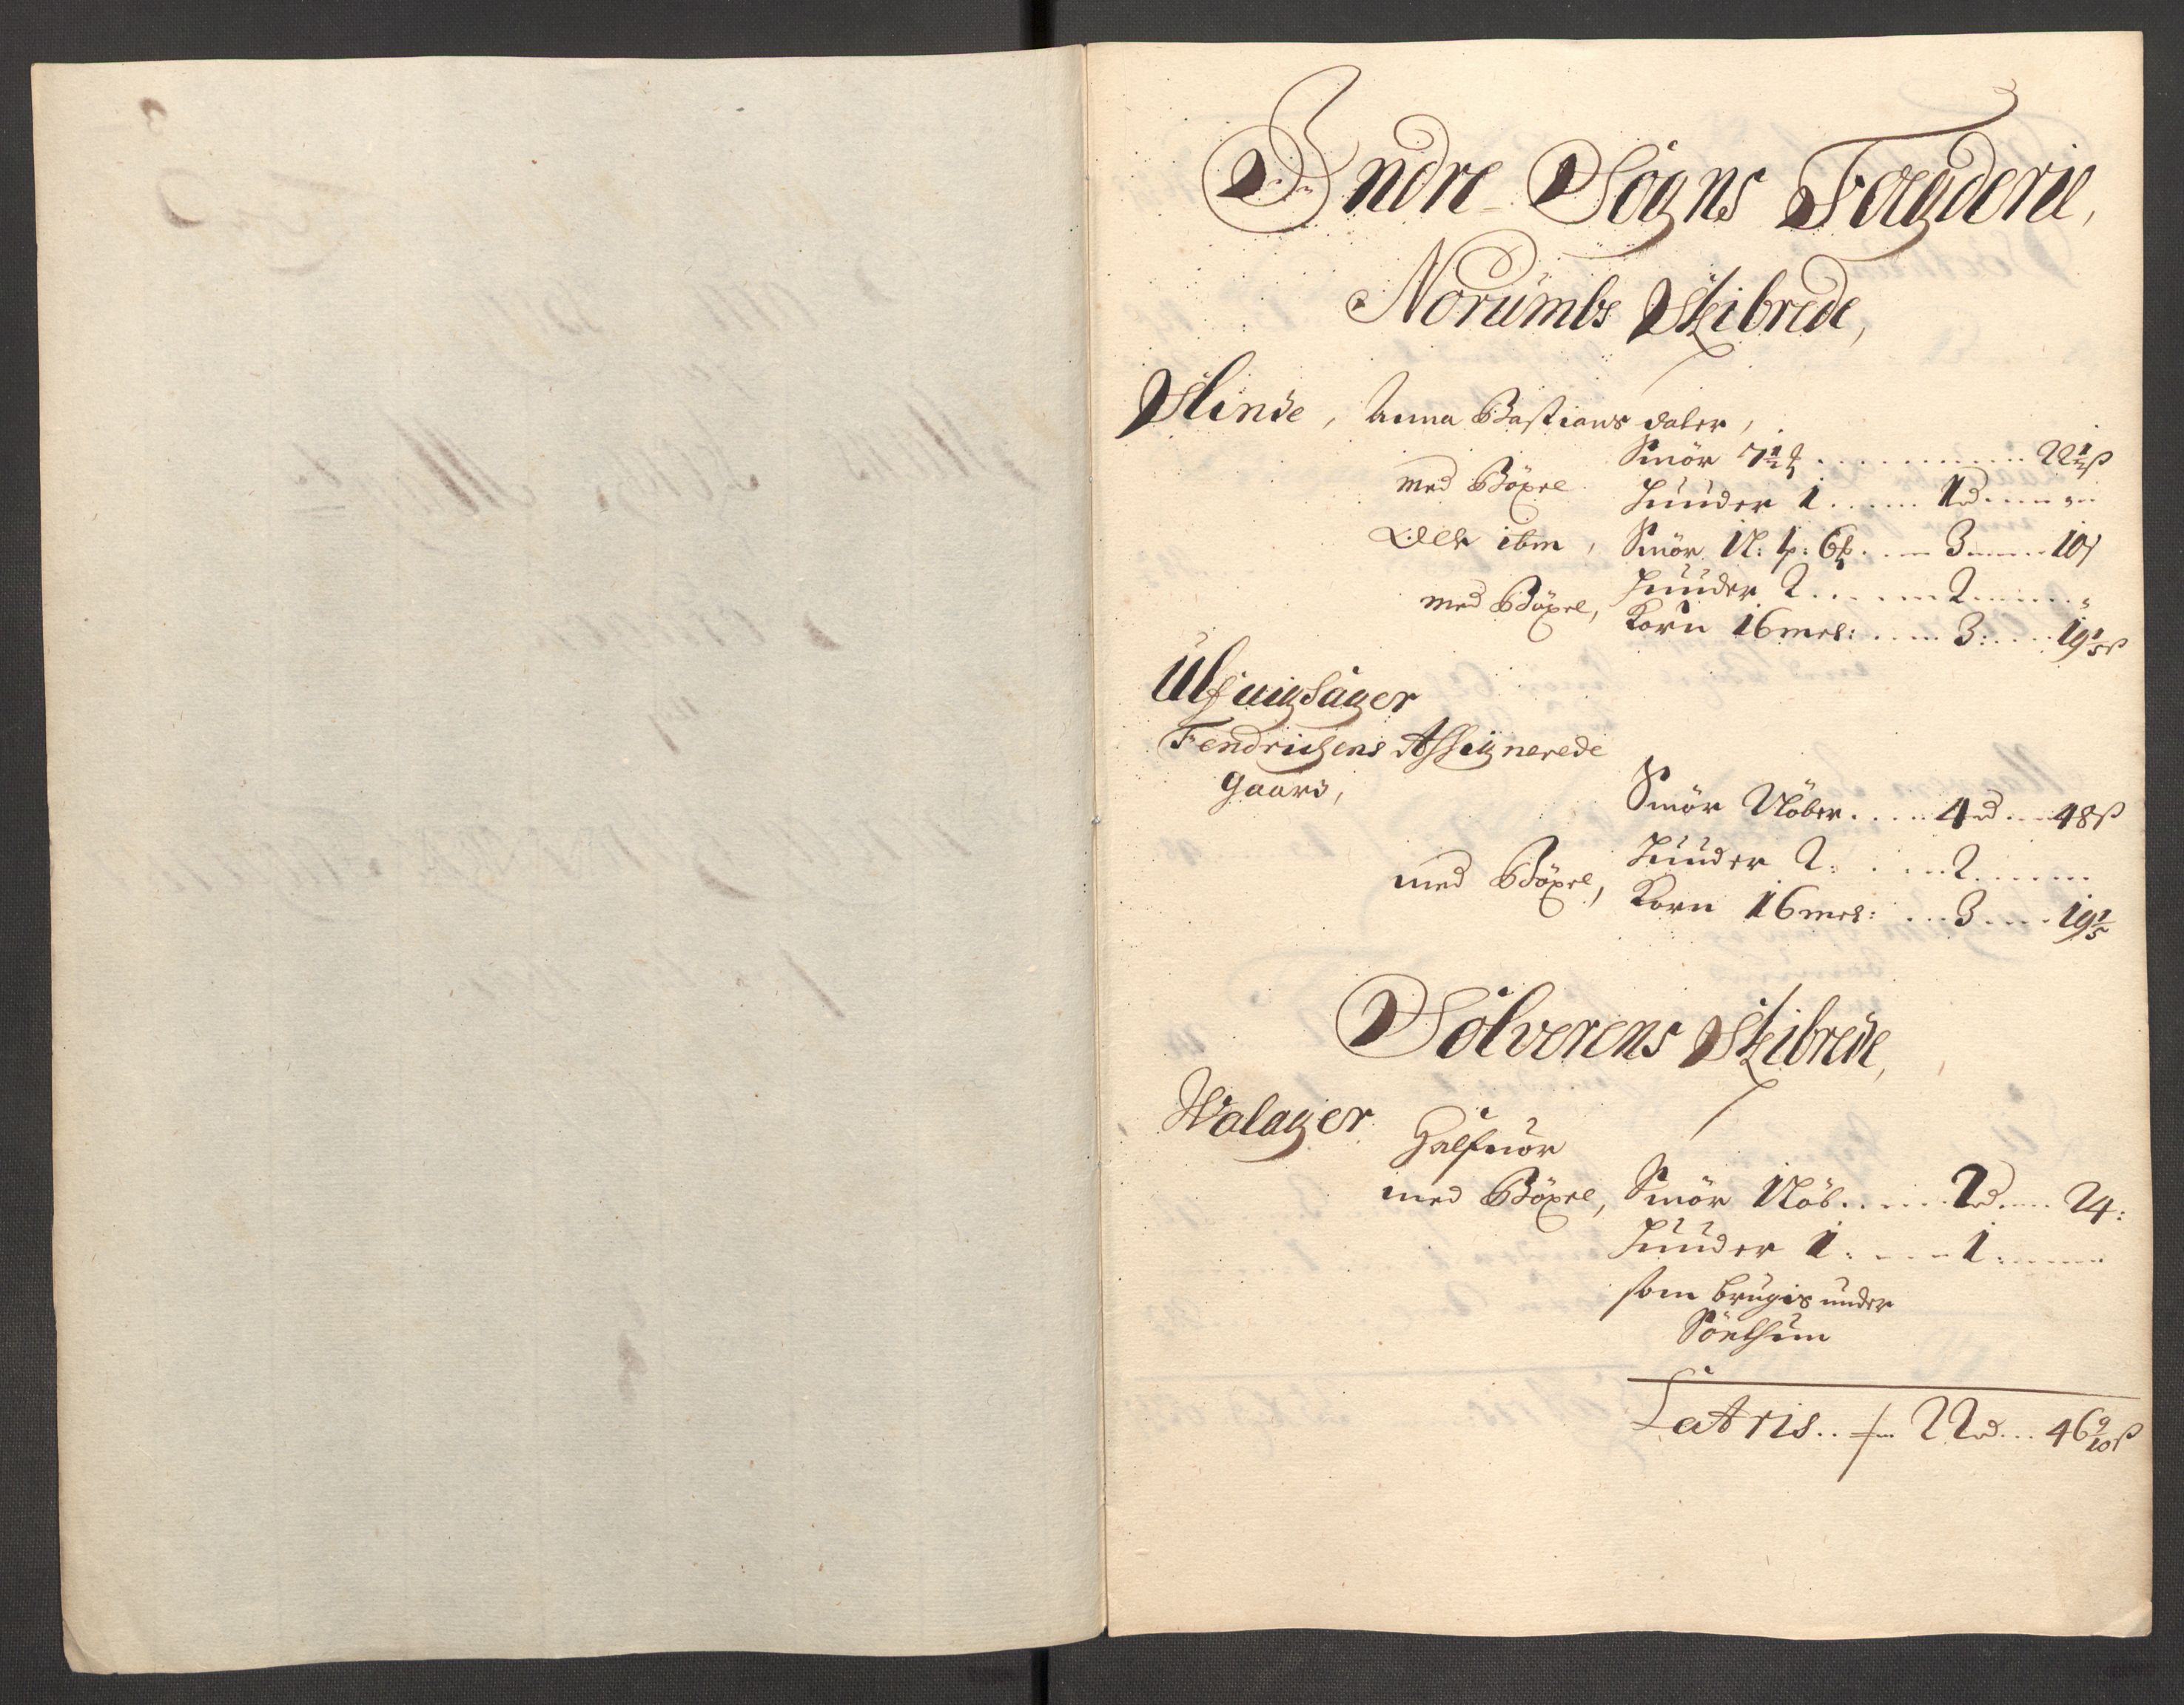 Indre Sogns Fougderie,
Norumbs Skibrede,
Slinde, Anna Bastians dater,
Smör 7½ ℔ . . . . . . . . . . 22½ ß
med Böxel Huuder 1 . . . . . 1 rd . . . . „
ibm, Smör 1 l: p: 6 ℔ . . . 3 . . . . 10 ß
Huuder 2 . . . . . 2 . . . . . „
med Böxel, Korn 16 mel: . . . . 3: . . . . 19⅕ ß
Ulfuigsager
Fendrichens Assignerede
Gaard,
Smör 2 löber . . . . 4 rd . . . 48 ß
Huuder 2: . . . . 2 . . . . . .
med Böxel, Korn 16 mel: . . . 3 . . . . 19⅕
Solverens Skibrede,
Walager
Halfuor
med Böxel, Smör 1 löb . . . . . 2 rd . . . . 24:
Huuder 1: . . . . 1: . . . . .
som brugis under
Sönhium
Latris . . 22 rd . . . 46 9/10 ß